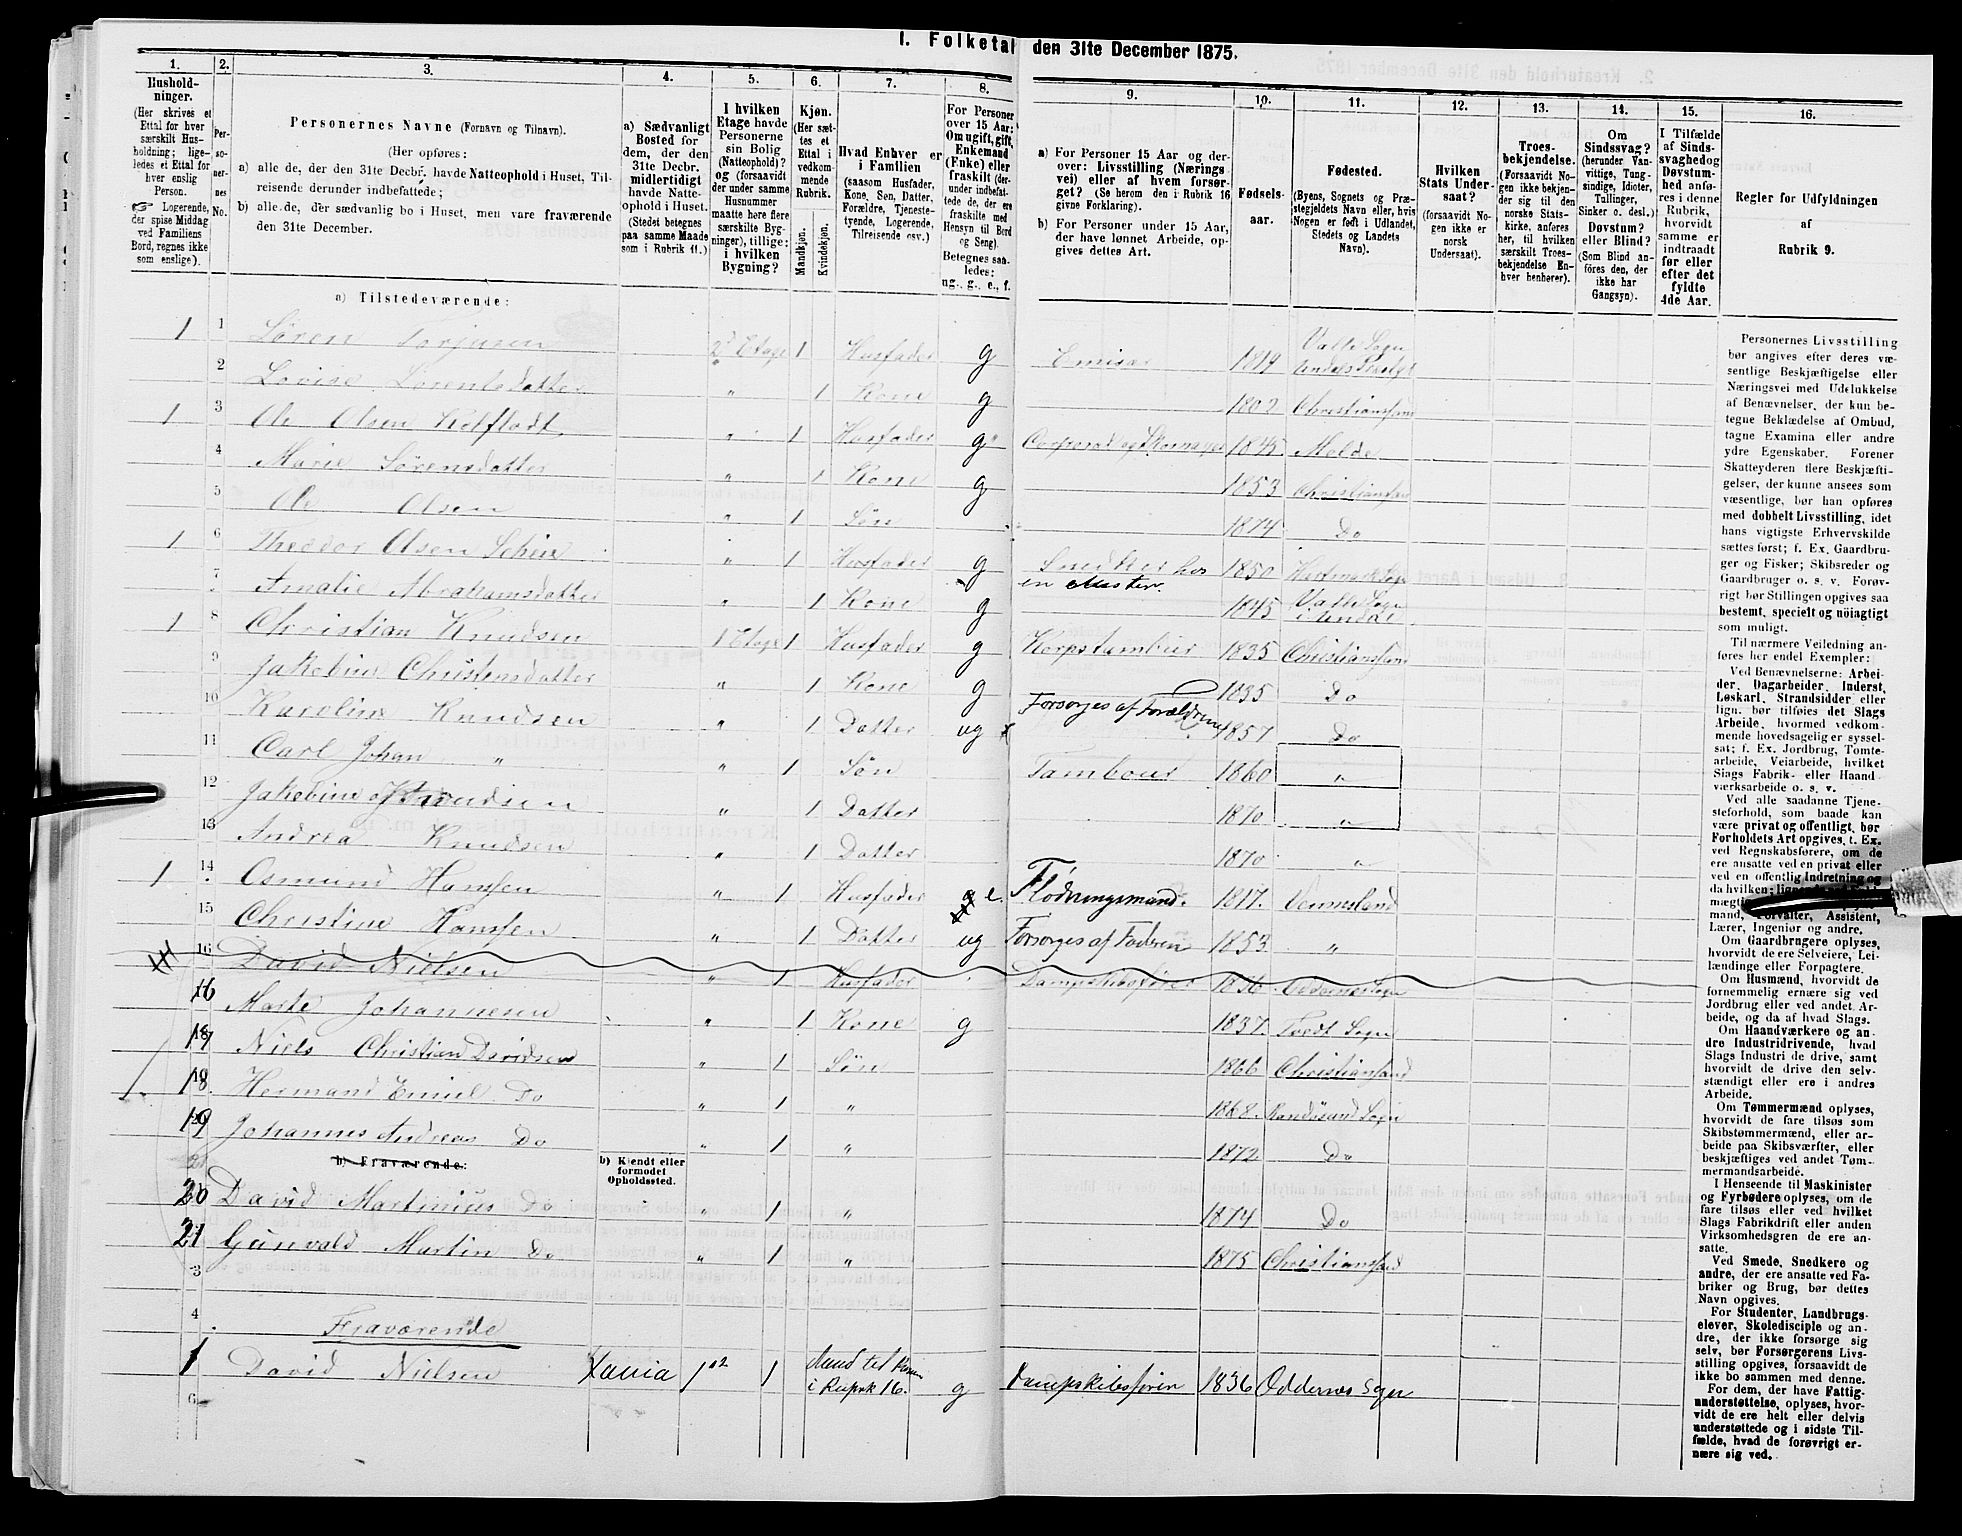 I. Folketal den 31te December 1875.
1. 2. 3. 4. 5. 6. 7. 8. 9. 10. 11. 12. 13. 14. 15. 16.
Husholdninger.
(Her skrives et
Ettal for hver
særskilt Husholdning; ligeledes et Ettal for
hver enslig
Person.
Logerende,
der spise Middag
ved Familiens
Bord, regnes ikke
som enslige).
Personernes No.
Personernes Navne (Fornavn og Tilnavn).
(Her opføres:
a) alle de, der den 31te Decbr. havde Natteophold i Huset, Tilreisende derunder indbefattede;
b) alle de, der sædvanlig bo i Huset, men vare fraværende
den 31te December.
a) Sædvanligt
Bosted for
dem, der den
31te Decbr.
midlertidigt
havde Natteophold i Huset.
(Stedet betegnes
paa samme Maade
som i Rubrik 11.)
I hvilken
Etage havde
Personerne
sin Bolig
(Natteophold)?
og (forsaavidt
der under samme
Husnummer
maatte høre flere
særskilte Bygninger), tillige:
i hvilken
Bygning?
Kjøn.
(Her sættes et
Ettal i
vedkommende
Rubrik.
Mandkjøn.
Kvindekjøn.
Hvad Enhver er
i Familien
(saasom Husfader,
Kone, Søn, Datter,
Forældre, Tjenestetyende, Logerende,
Tilreisende osv.)
For Personer
over 15 Aar:
Om ugift, gift,
Enkemand
(Enke) eller
fraskilt (derunder indbefattede de, der ere
fraskilte med
Hensyn til Bord
og Seng).
Betegnes saaledes:
ug., g., e., f.
a) For Personer 15 Aar og derover: Livsstilling (Næringsvei) eller af hvem forsørget? (Se herom den i Rubrik 16
givne Forklaring).
b) For Personer under 15 Aar,
der have lønnet Arbeide, opgives dettes Art.
Fødselsaar.
Fødested.
(Byens, Sognets og Præstegjeldets Navn eller, hvis
Nogen er født i Udlandet,
Stedets og Landets
Navn).
Hvilken
Stats Undersaat?
(forsaavidt Nogen ikke er
norsk
Undersaat).
Troesbekjendelse.
(Forsaavidt Nogen ikke bekjender sig til den
norske Statskirke, anføres
her, til hvilken
særskilt Troesbekjendelse Enhver henhører).
Om
Sindssvag?
(herunder Vanvittige, Tungsindige, Idioter,
Tullinger,
Sinker o. desl.)
Døvstum?
eller Blind?
(Som Blind anføres den, der
ikke har
Gangsyn).
I Tilfælde
af Sindssvaghed og
Døvstumhed anføres i denne
Rubrik,
hvorvidt
samme er
indtraadt
før eller
efter det
fyldte
4de Aar.
Regler for Udfyldningen
af
Rubrik 9.
a) Tilstedeværende:
1 1 Søren Torjusen 2d Etage 1 Husfader g Emisær 1819 Valle Sogn
2 Lovise Lorentsdatter " 1 Kone g 1802 Christianssand
1 3 Ole Olsen " 1 Husfader g Corporal og Skomager 1845 Molde
4 Marie Sørensdatter " 1 Kone g 1853 Christianssand
5 Ole Olsen " 1 Søn 1874 Do
1 6 Theodor Olsen " 1 Husfader g Snedker hos en Mester. 1850
7 Amalie Abrahamsdatter " 1 Kone g 1845 Valle Sogn
1 8 Christian Knudsen 1 Etage 1 Husfader g Korpstambur 1835 Christianssand
9 Jakobine Christensdatter " 1 Kone g 1835 Do
10 Karoline Knudsen " 1 Datter ug Forsørges af Forældrene 1857 Do
11 Carl Johan " " 1 Søn Tambour 1860 "
12 Jakobine Knudsen " 1 Datter 1870 "
13 Andrea Knudsen " 1 Datter 1870 "
1 14 Osmund Hansen " 1 Husfader e. Flødningsmand. 1817. Vennesland
15 Christine Hansen " 1 Datter ug Forsørges af Faderen 1853 "
16 David Nielsen " 1 Husfader 1836 Oddernes Sogn
16 Marte Johannesen " 1 Kone g 1837. Tvedt Sogn
17 Niels Christian Davidsen " 1 Søn 1866 Christianssand
1 18 Hermand Emiel Do " 1 " 1868. Randøsund Sogn
19 Johannes Andreas Do " 1 " 1872 Do
b) Fraværende:
b) Kjendt eller
formodet
Opholdssted.
20 David Martinius Do " 1 " 1874 Do
21 Gunvald Martin Do " 1 " 1875 Christianssand
3
4
Fraværende
1 David Nielsen Xania 1 Mand til Konen
i Rubrik 16. g Dampskibsfører 1836 Oddernes Sogn
6
Personernes Livsstilling
bør angives efter deres væsentlige Beskjæftigelse eller
Næringsvei med Udelukkelse
af Benævnelser, der kun betegne Beklædelse af Ombud,
tagne Examina eller andre
ydre Egenskaber. Forener
Skatteyderen flere Beskjæftigelser, der kunne ansees som
væsentlige, bør han opføres
med dobbelt Livsstilling, idet
hans vigtigste Erhvervskilde
sættes først; f. Ex. Gaardbruger og Fisker; Skibsreder og
Gaardbruger o. s. v. Forøvrigt bør Stillingen opgives saa
bestemt, specielt og nøiagtigt
som muligt.
Til nærmere Veiledning anføres her endel Exempler:
Ved Benævnelserne: Arbeider, Dagarbeider, Inderst,
Løskarl, Strandsidder eller
lign. bør tilføies det Slags
Arbeide, hvormed vedkommende hovedsagelig er sysselsat; f. Ex. Jordbrug, Tomtearbeide, Veiarbeide, hvilket
Slags Fabrik- eller Haandværksarbeide o. s. v.
Ved alle saadanne Tjenesteforhold, som baade kan
være privat og offentligt, bør
Forholdets Art opgives, t. Ex.
ved Regnskabsførere, om de
ere ansatte ved en privat eller
ved en offentlig Indretning og
da hvilken;
mand, Forvalter, Assistent,
Lærer, Ingeniør og andre.
Om Gaardbrugere oplyses,
hvorvidt de ere Selveiere, Leilændinge eller Forpagtere.
Om Husmænd, hvorvidt de
fornemmelig ernære sig ved
Jordbrug eller ved andet Arbeide, og da af hvad Slags.
Om Haandværkere og andre Industridrivende, hvad
Slags Industri de drive, samt
hvorvidt de drive den selvstændigt eller ere i andres
Arbeide.
Om Tømmermænd oplyses,
hvorvidt de fare tilsøs som
Skibstømmermænd, eller arbeide paa Skibsværfter, eller
beskjæftiges ved andet Tømmermandsarbeide.
I Henseende til Maskinister
og Fyrbødere oplyses, om de
fare tilsøs eller ved hvilket
Slags Fabrikdrift eller anden
Virksomhedsgren de ere ansatte.
Ved Smede, Snedkere og
andre, der ere ansatte ved Fabriker og Brug, bør dettes
Navn opgives.
For Studenter, Landbrugselever, Skoledisciple og andre, der ikke forsørge sig
selv, bør Forsørgerens Livsstilling opgives, forsaavidt de
ikke bo sammen med denne.
For dem, der have Fattigunderstøttelse, oplyses, hvorvidt de ere helt eller delvis
understøttede og i sidste Tilfælde, hvad de forøvrigt ernære sig ved.